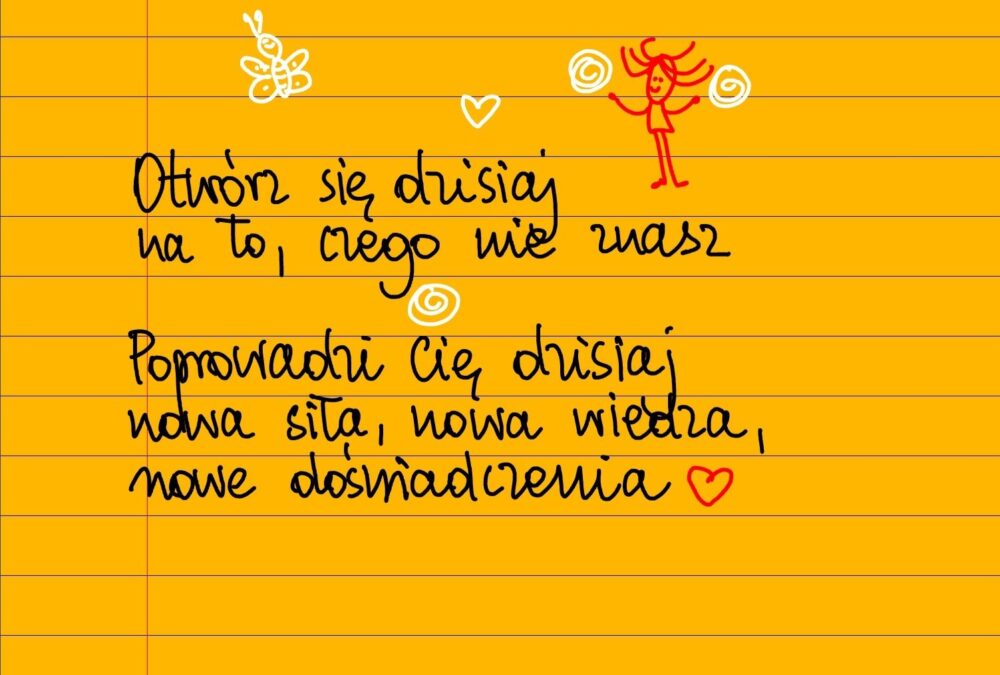 Otwórz się dzisiaj
na to, czego nie znasz
Poprowadzi Cię dzisiaj
nowa siła, nowa wiedza,
nowe doświadczenia